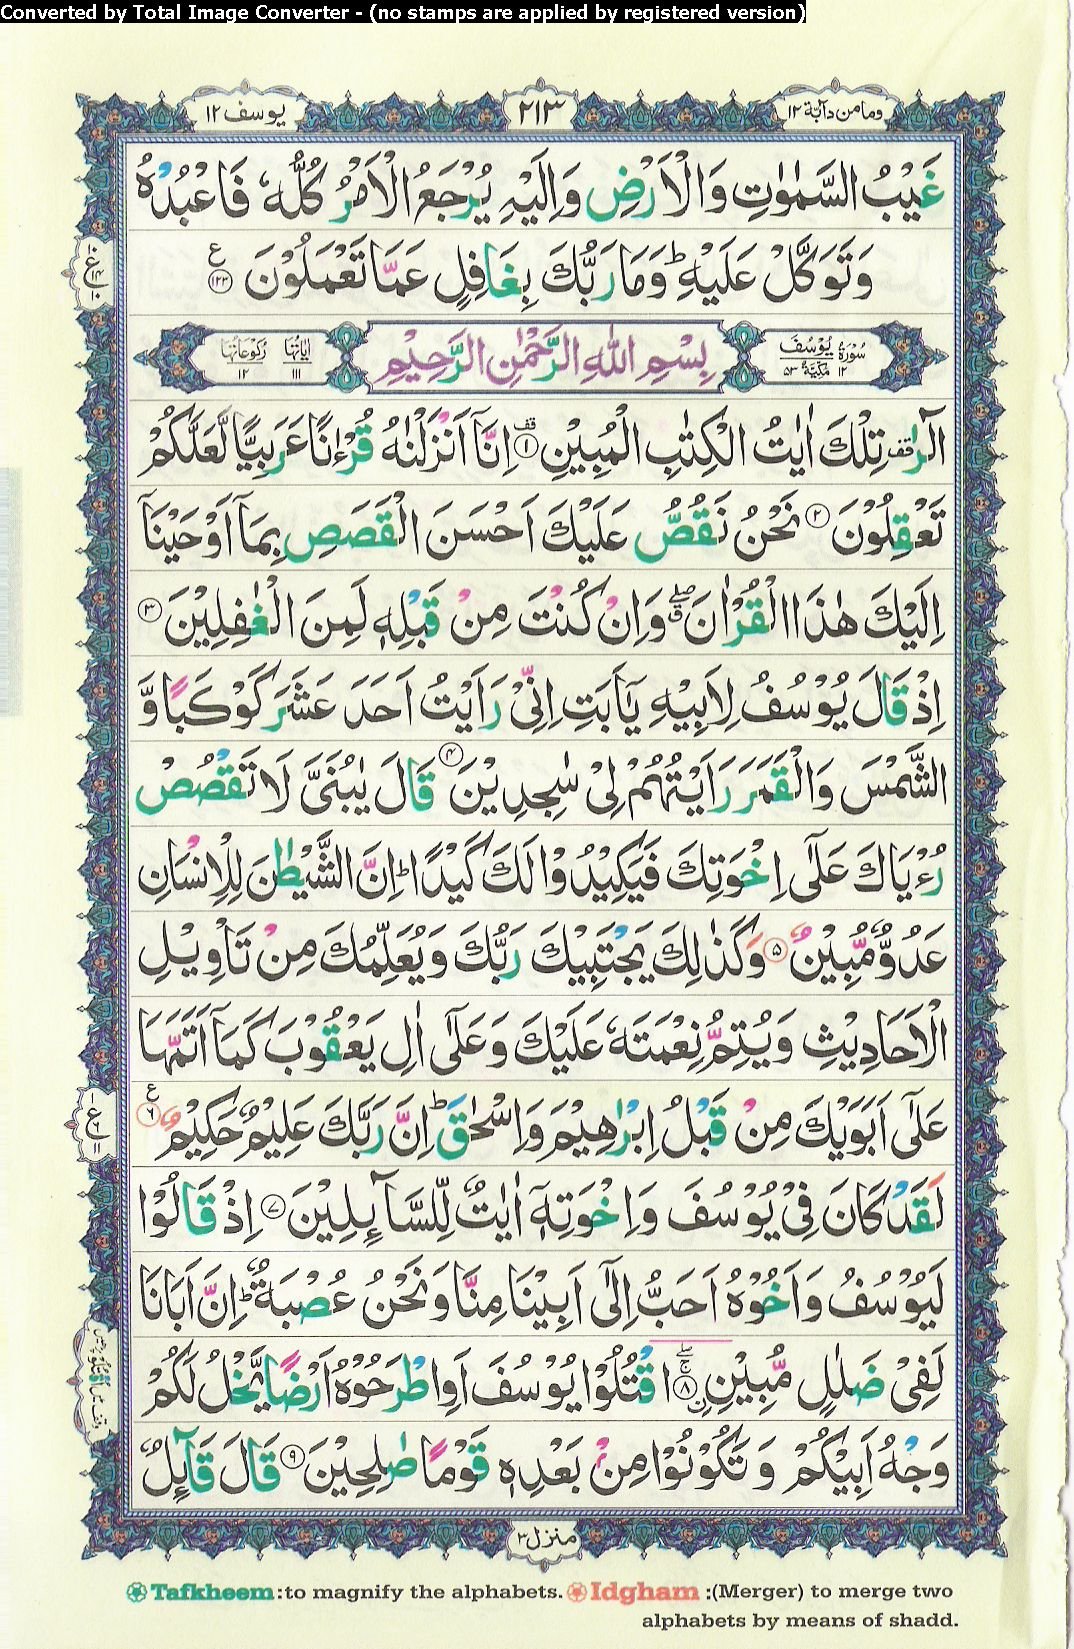 Converted by Total Image Converter - (no stamps are applied by registered version)
وما من دآبة ١٢
٢١٣
يوسف ١٢
غَيْبُ السَّمٰوٰتِ وَالْاَرْضِ وَاِلَيْهِ يُرْجَعُ الْاَمْرُ كُلُّهٗ فَاعْبُدْهُ
وَتَوَكَّلْ عَلَيْهِ ؕ وَمَا رَبُّكَ بِغَافِلٍ عَمَّا تَعْمَلُوْنَ ۝۱۲۳ ع
سُوْرَةُ يُوْسُفَ ١٢ مَكِّيَّةٌ ٥٣
بِسْمِ اللّٰهِ الرَّحْمٰنِ الرَّحِيْمِ
اٰيَاتُهَا ١١١ رُكُوْعَاتُهَا ١٢
الٓرٰ قف تِلْكَ اٰيٰتُ الْكِتٰبِ الْمُبِيْنِ ۝۱ قف اِنَّاۤ اَنْزَلْنٰهُ قُرْءٰنًا عَرَبِيًّا لَّعَلَّكُمْ
تَعْقِلُوْنَ ۝۲ نَحْنُ نَقُصُّ عَلَيْكَ اَحْسَنَ الْقَصَصِ بِمَاۤ اَوْحَيْنَاۤ
اِلَيْكَ هٰذَا الْقُرْاٰنَ ۖۗ وَاِنْ كُنْتَ مِنْ قَبْلِهٖ لَمِنَ الْغٰفِلِيْنَ ۝۳
اِذْ قَالَ يُوْسُفُ لِاَبِيْهِ يٰۤاَبَتِ اِنِّيْ رَاَيْتُ اَحَدَ عَشَرَ كَوْكَبًا وَّ
الشَّمْسَ وَالْقَمَرَ رَاَيْتُهُمْ لِيْ سٰجِدِيْنَ ۝۴ قَالَ يٰبُنَيَّ لَا تَقْصُصْ
رُءْيَاكَ عَلٰۤى اِخْوَتِكَ فَيَكِيْدُوْا لَكَ كَيْدًا ؕ اِنَّ الشَّيْطٰنَ لِلْاِنْسَانِ
عَدُوٌّ مُّبِيْنٌ ۝۵ وَكَذٰلِكَ يَجْتَبِيْكَ رَبُّكَ وَيُعَلِّمُكَ مِنْ تَاْوِيْلِ
الْاَحَادِيْثِ وَيُتِمُّ نِعْمَتَهٗ عَلَيْكَ وَعَلٰۤى اٰلِ يَعْقُوْبَ كَمَاۤ اَتَمَّهَا
عَلٰۤى اَبَوَيْكَ مِنْ قَبْلُ اِبْرٰهِيْمَ وَاِسْحٰقَ ؕ اِنَّ رَبَّكَ عَلِيْمٌ حَكِيْمٌ ۝۶ ع
لَقَدْ كَانَ فِيْ يُوْسُفَ وَاِخْوَتِهٖۤ اٰيٰتٌ لِّلسَّآئِلِيْنَ ۝۷ اِذْ قَالُوْا
لَيُوْسُفُ وَاَخُوْهُ اَحَبُّ اِلٰۤى اَبِيْنَا مِنَّا وَنَحْنُ عُصْبَةٌ ؕ اِنَّ اَبَانَا
لَفِيْ ضَلٰلٍ مُّبِيْنِ ۝۸ ۨاقْتُلُوْا يُوْسُفَ اَوِ اطْرَحُوْهُ اَرْضًا يَّخْلُ لَكُمْ
وَجْهُ اَبِيْكُمْ وَتَكُوْنُوْا مِنْۢ بَعْدِهٖ قَوْمًا صٰلِحِيْنَ ۝۹ قَالَ قَآئِلٌ
منزل ٣
Tafkheem :to magnify the alphabets. Idgham :(Merger) to merge two
alphabets by means of shadd.